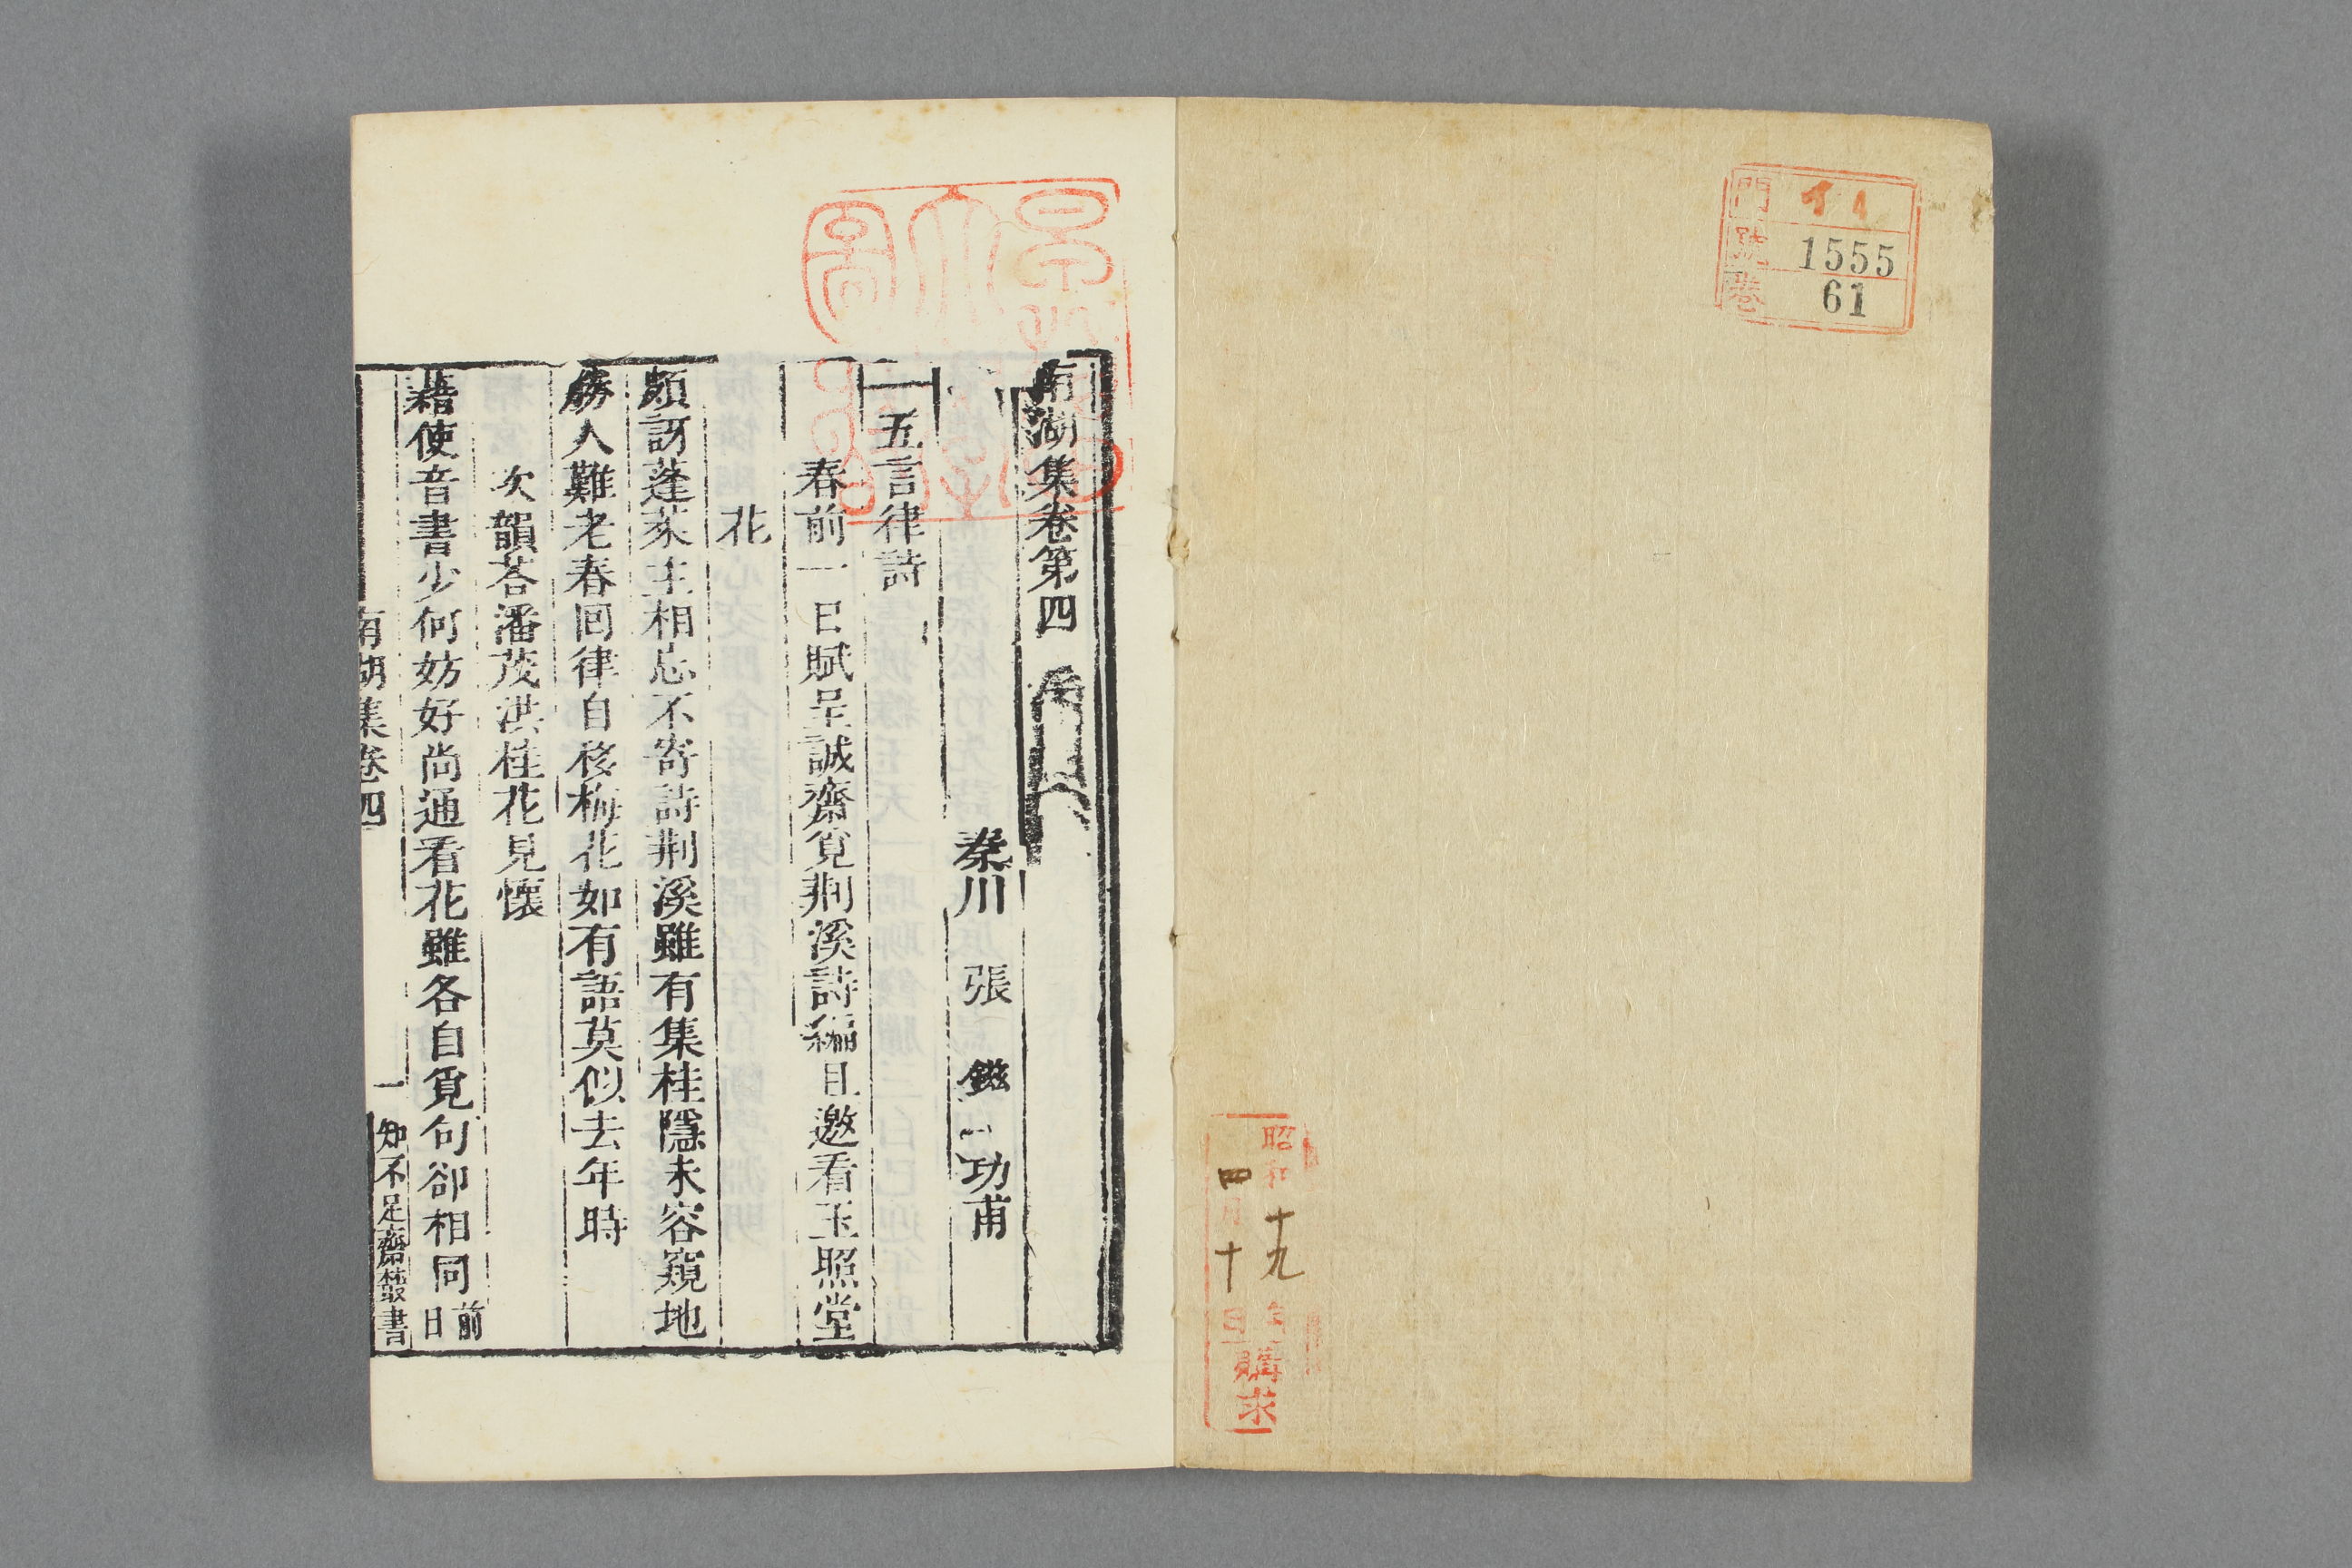 門 イ 4
號 1555
卷 61
昭和十九年
四月十日
購求
南湖集卷第四
秦川 張 鎡 功甫
五言律詩
春前一日賦呈誠齋覓荆溪詩編且邀看玉照堂
花
頗訝蓬萊主相忘不寄詩荆溪雖有集桂隱未容窺地
勝人難老春回律自移梅花如有語莫似去年時
次韻荅潘茂洪桂花見懷
藉使音書少何妨好尚通看花雖各自覓句卻相同前日
南湖集卷四 一 知不足齋叢書